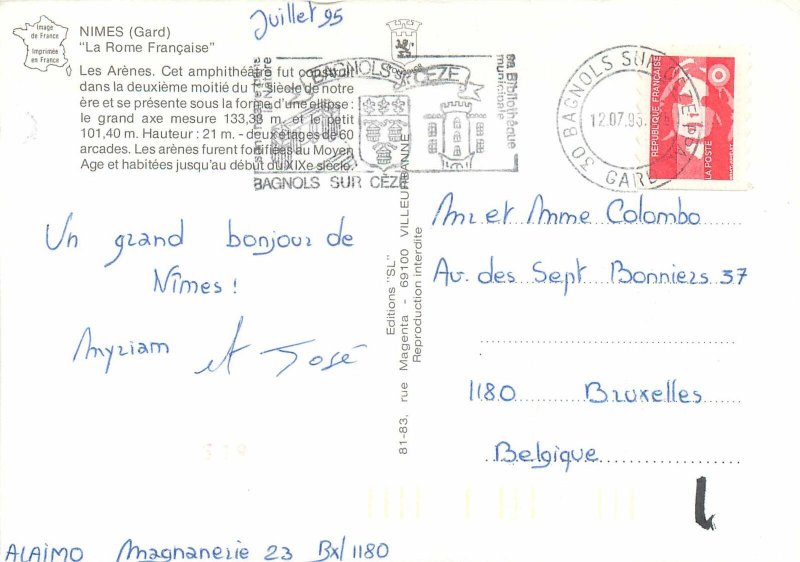 Juillet 95
Image
de France
Imprimée
en France
NIMES (Gard)
"La Rome Française"
Les Arènes. Cet amphithéâtre fut construit
dans la deuxième moitié du 1er siècle de notre
ère et se présente sous la forme d'une ellipse :
le grand axe mesure 133,38 m. et le petit
101,40 m. Hauteur : 21 m. - deux étages de 60
arcades. Les arènes furent fortifiées au Moyen
Age et habitées jusqu'au début du XIXe siècle.
BAGNOLS sur CÈZE
sa Bibliothèque
municipale
BAGNOLS SUR CÈZE
30 BAGNOLS SUR CEZE
12.07.95
GARD
REPUBLIQUE FRANÇAISE
LA POSTE
Un grand bonjour de
Nîmes !
Myriam et José
Editions "SL"
81-83, rue Magenta - 69100 VILLEURBANNE
Reproduction interdite
Mr et Mme Colombo
Av. des Sept Bonniers 37
1180 Bruxelles
Belgique
ALAIMO Magnanerie 23 Bx/1180